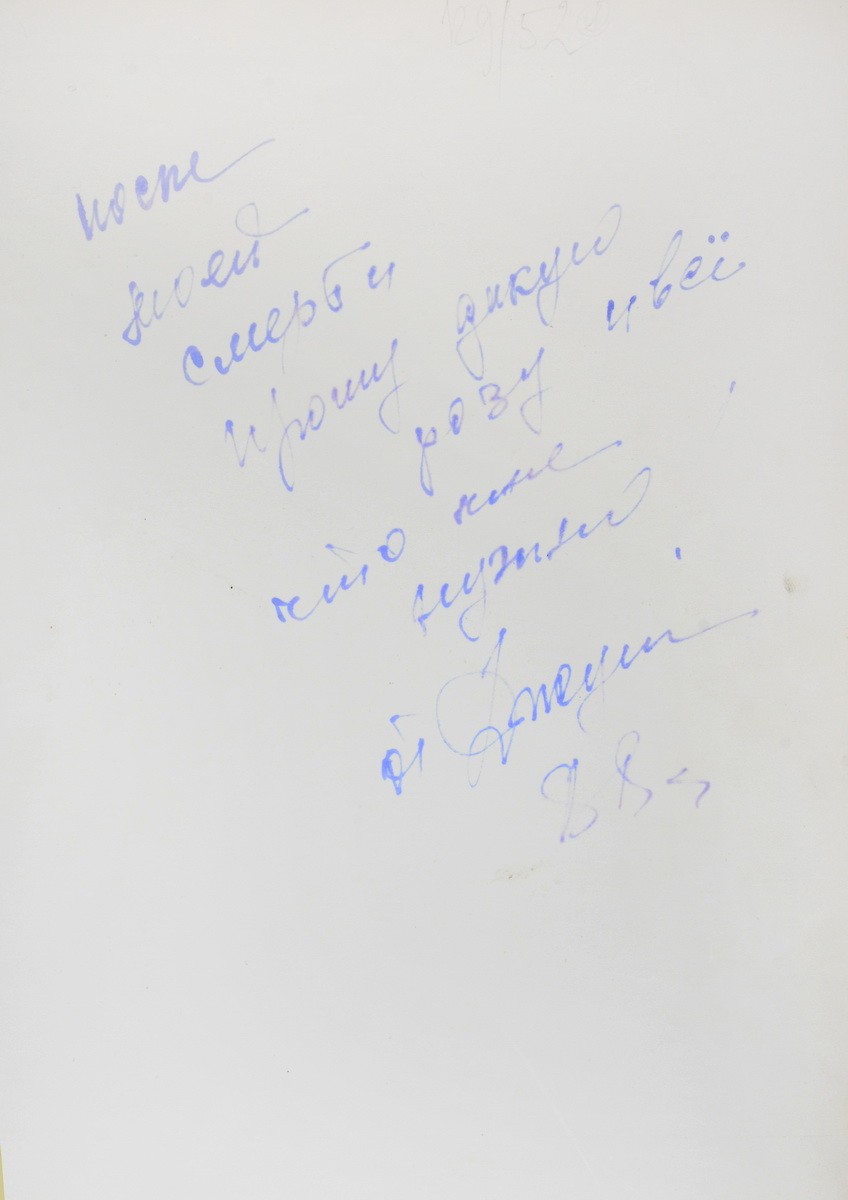 после
моей
смерти
прошу дикую
розу и всё
что мне
нужно.
от Джуны
88 г